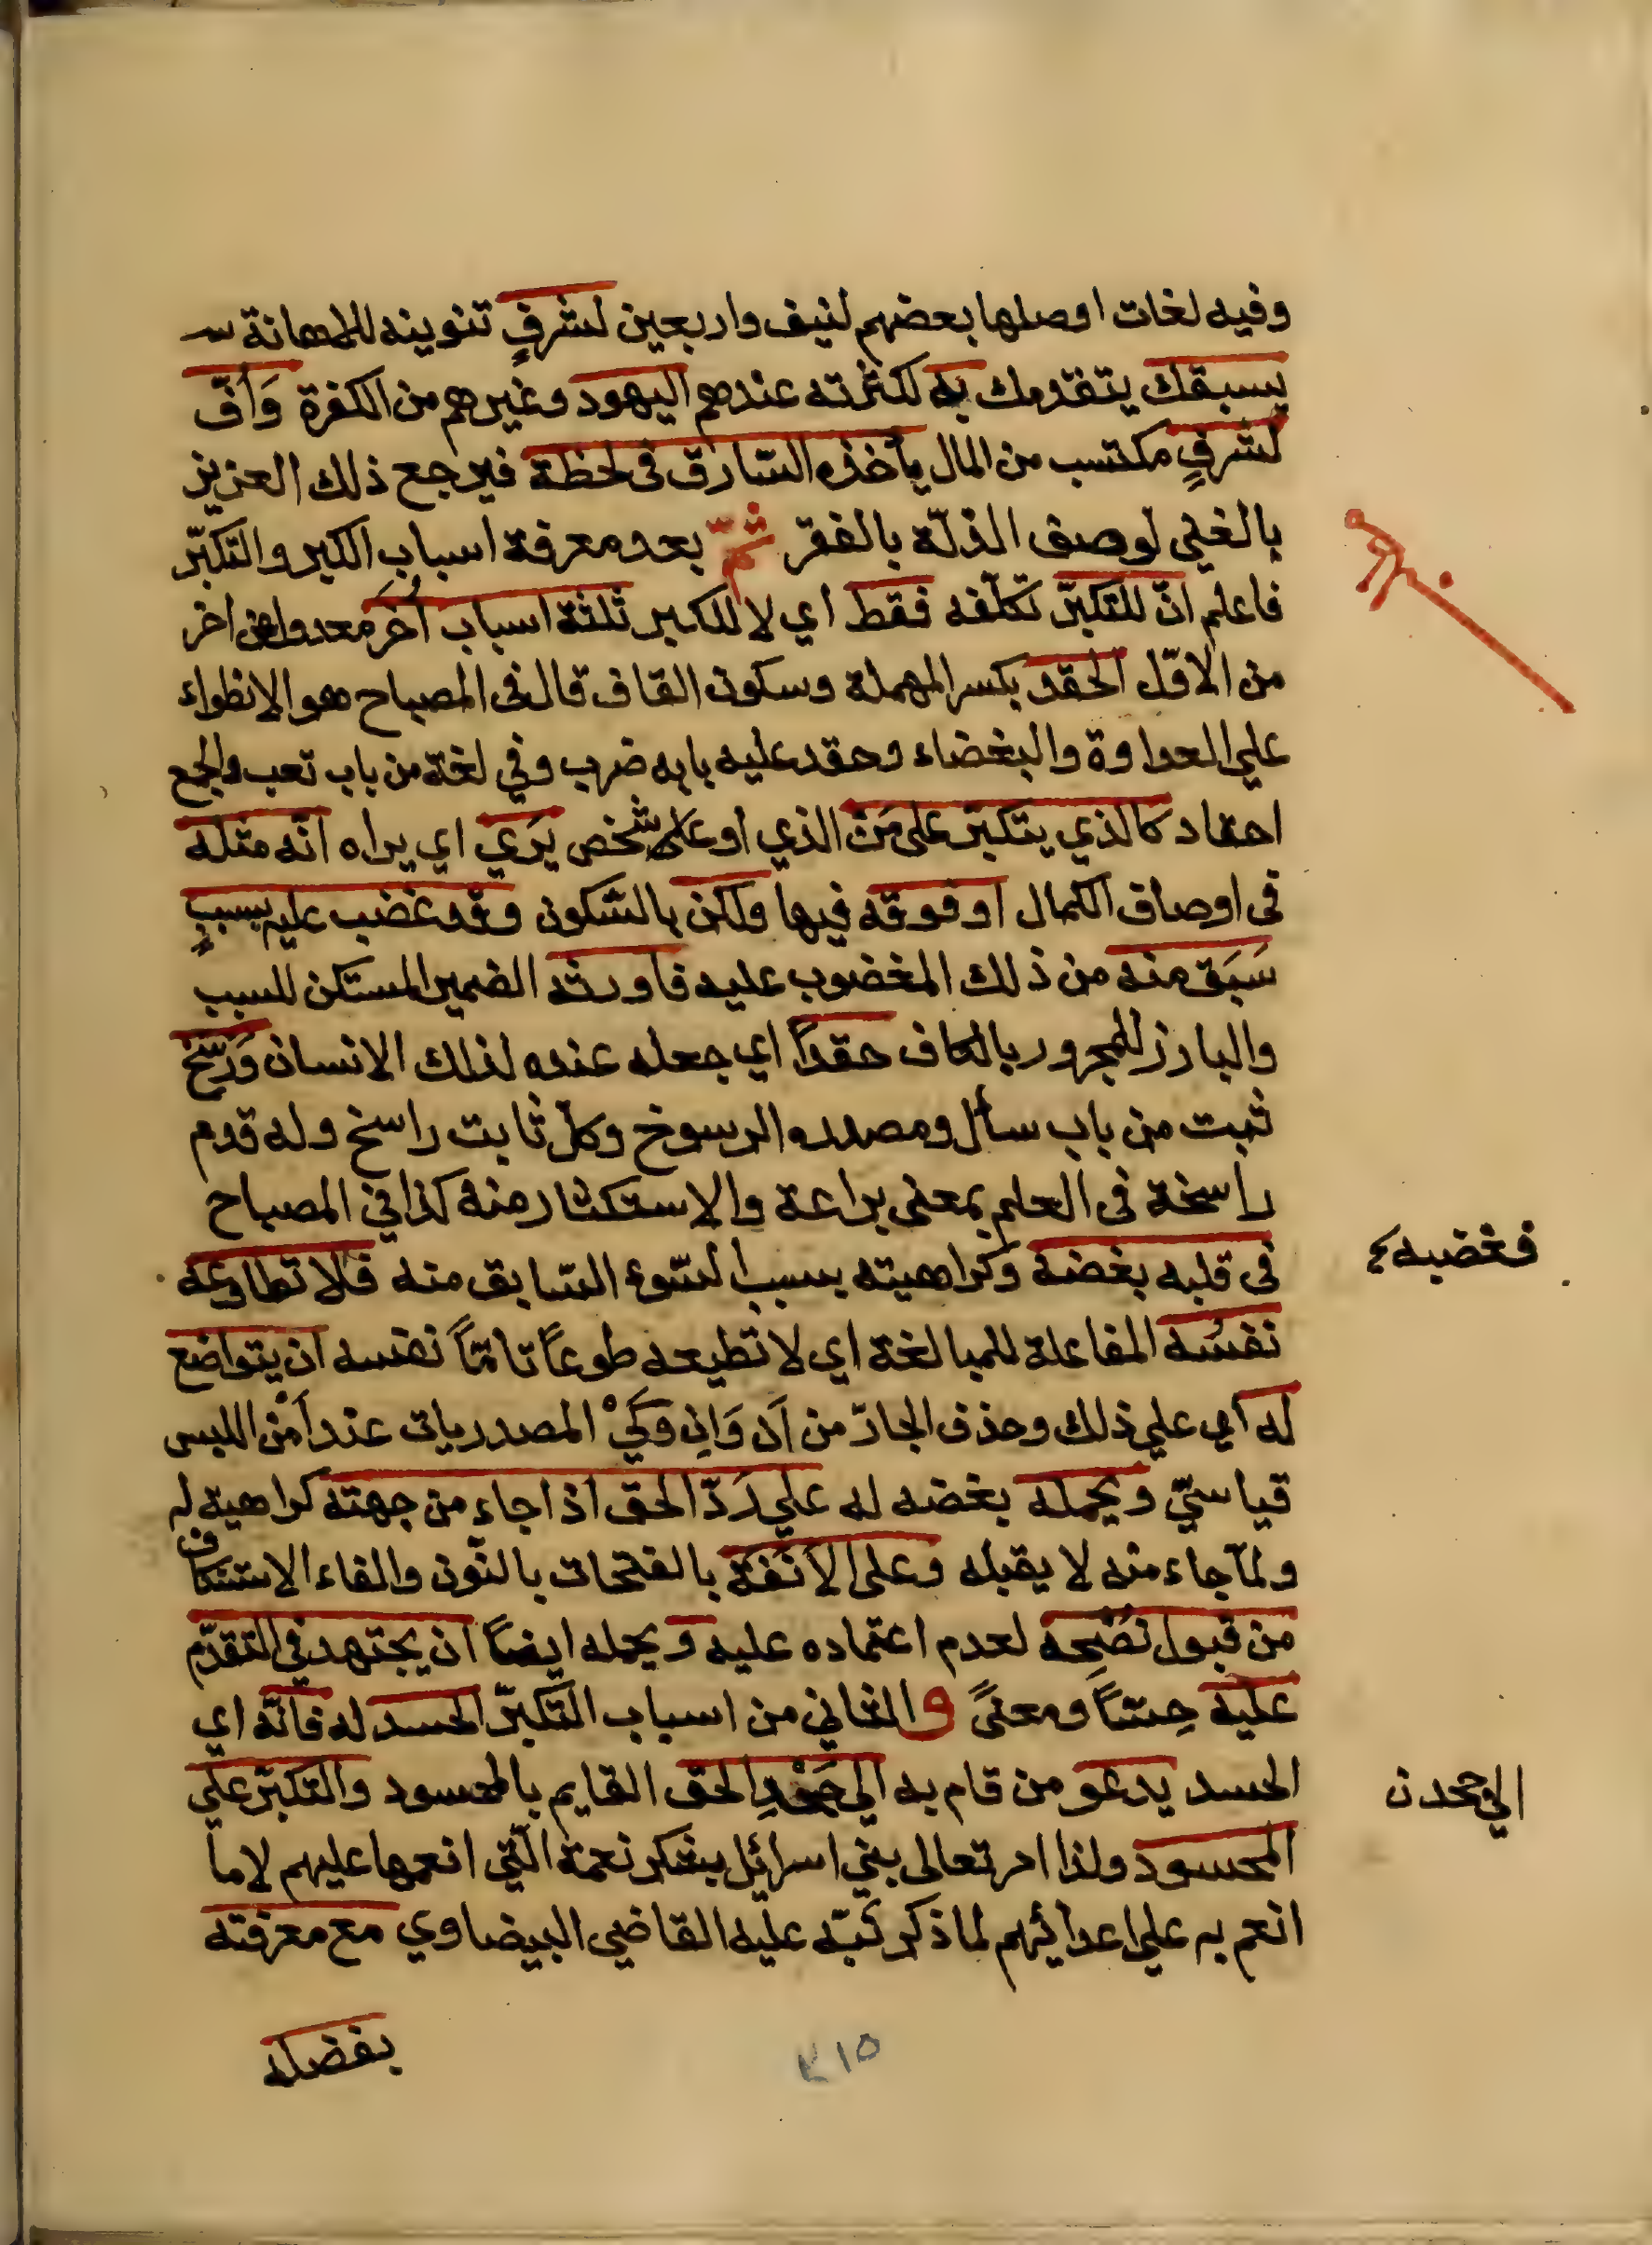 وفيه لغات اوصلها بعضهم لنيف واربعين لشرفٍ تنوينه للاهانة
يسبقك يتقدمك به لكثرته عندهم اليهود وغيرهم من الكفرة وَأُفّ
لشرفٍ مكتسب من المال يأخذه السّارق فى لحظة فيرجع ذلك العزيز
بالغني لوصف الذلّة بالفقر ثمّ بعد معرفة اسباب الكبر والتكبّر
فاعلم انّ للتكبّر تكلّفه فقط اي لا للكبر ثلثة اسباب أُخَر معدول عن اخر
من الاوّل الحقد بكسر المهملة وسكون القاف قال فى المصباح هو الانطواء
علي العداوة والبغضاء وحقد عليه بابه ضرب وفي لغة من باب تعب والجمع
احقاد كالذي يتكبّر على مَن الذي او على شخص يَرَي اي يراه انّه مثله
فى اوصاف الكمال او فوقه فيها ولكن بالسّكون وقد غضب عليه بسببٍ
سَبَق منه من ذلك المغضوب عليه فاورثه الضمير المستكن للسبب
والبارز للمجرور بالكاف حقداً اي جعله عنده لذلك الانسان وَرَسّخ
ثبت من باب سأل ومصدره الرسوخ وكلّ ثابت راسخ وله قدم
راسخة فى العلم بمعنى براعة والاستكثار منه كذا في المصباح
فى قلبه بغضه وكراهيته بسبب السّوء السّابق منه فلا تطاوعه
فغضبه
نفسُه المفاعلة للمبالغة اي لا تطيعه طوعاً تامّاً نفسه ان يتواضع
له اي علي ذلك وحذف الجارّ من اَن وَانّ وَكَيْ المصدريات عند اَمْن اللبس
قياسيّ ويحمله بغضه له علي رَدّ الحق اذا جاء من جهته كراهية له
ولما جاء منه لا يقبله وعلى الاَنَفَة بالفتحات بالنّون والفاء الاستنكاف
من قبول نُصْحِه لعدم اعتماده عليه و يحمله ايضاً ان يجتهد في التقدّم
عليه حِسّاً ومعنىً و الثاني من اسباب التكبّر الحسد له فانّه اي
الحسد يدعو من قام به الي جَحْدِ الحق القايم بالمحسود والتكبّر علي
الي جحد ن
المحسود ولذا امر تعالى بني اسرائيل بشكر نعمة الّتي انعمها عليهم لا ما
انعم به علي اعدائهم لما ذكر نَبّه عليه القاضي البيضاوي مع معرفته
بفضله
٢١٥